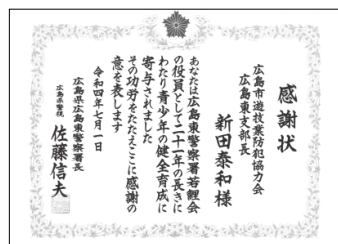 感謝状
広島市遊技業防犯協力会
広島東支部長
新田泰和様
あなたは広島東警察署若鯉会
の役員として二十一年の長きに
わたり青少年の健全育成に
寄与されました
その功労をたたえここに感謝の
意を表します
令和四年七月一日
広島県広島東警察署長
広島県警視 佐藤信夫